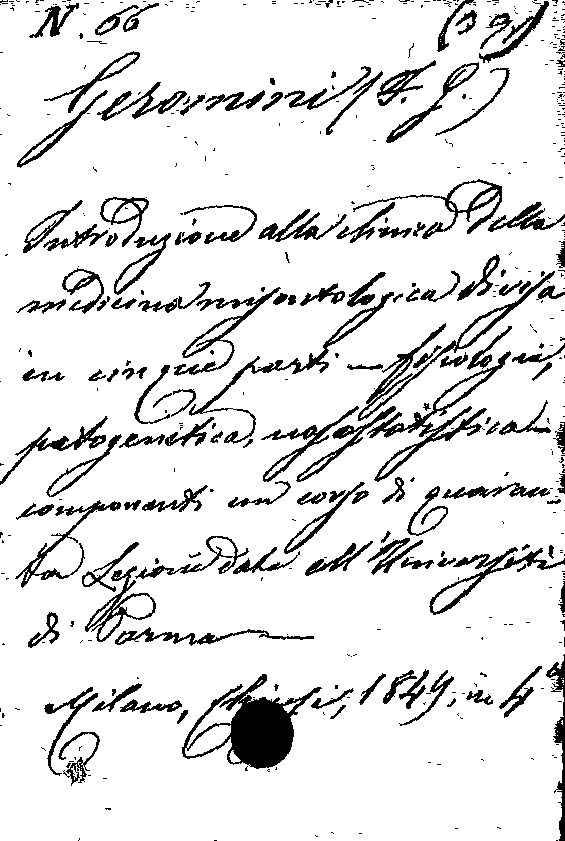 N. 66 (39)
Geromini (F. G.)
Introduzione alla clinica della
medicina misontologica divisa
in cinque parti — fisiologia,
patogenetica, nosostatistica
componenti un corso di quaran-
ta Lezioni date all'Università
di Parma —
Milano, Chiusi, 1849, in 4°